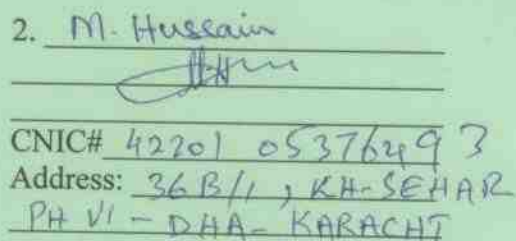 2. M. Hussain
CNIC# 42201 05376493
Address: 36B/1, KH-SEHAR
PH VI - DHA- KARACHI